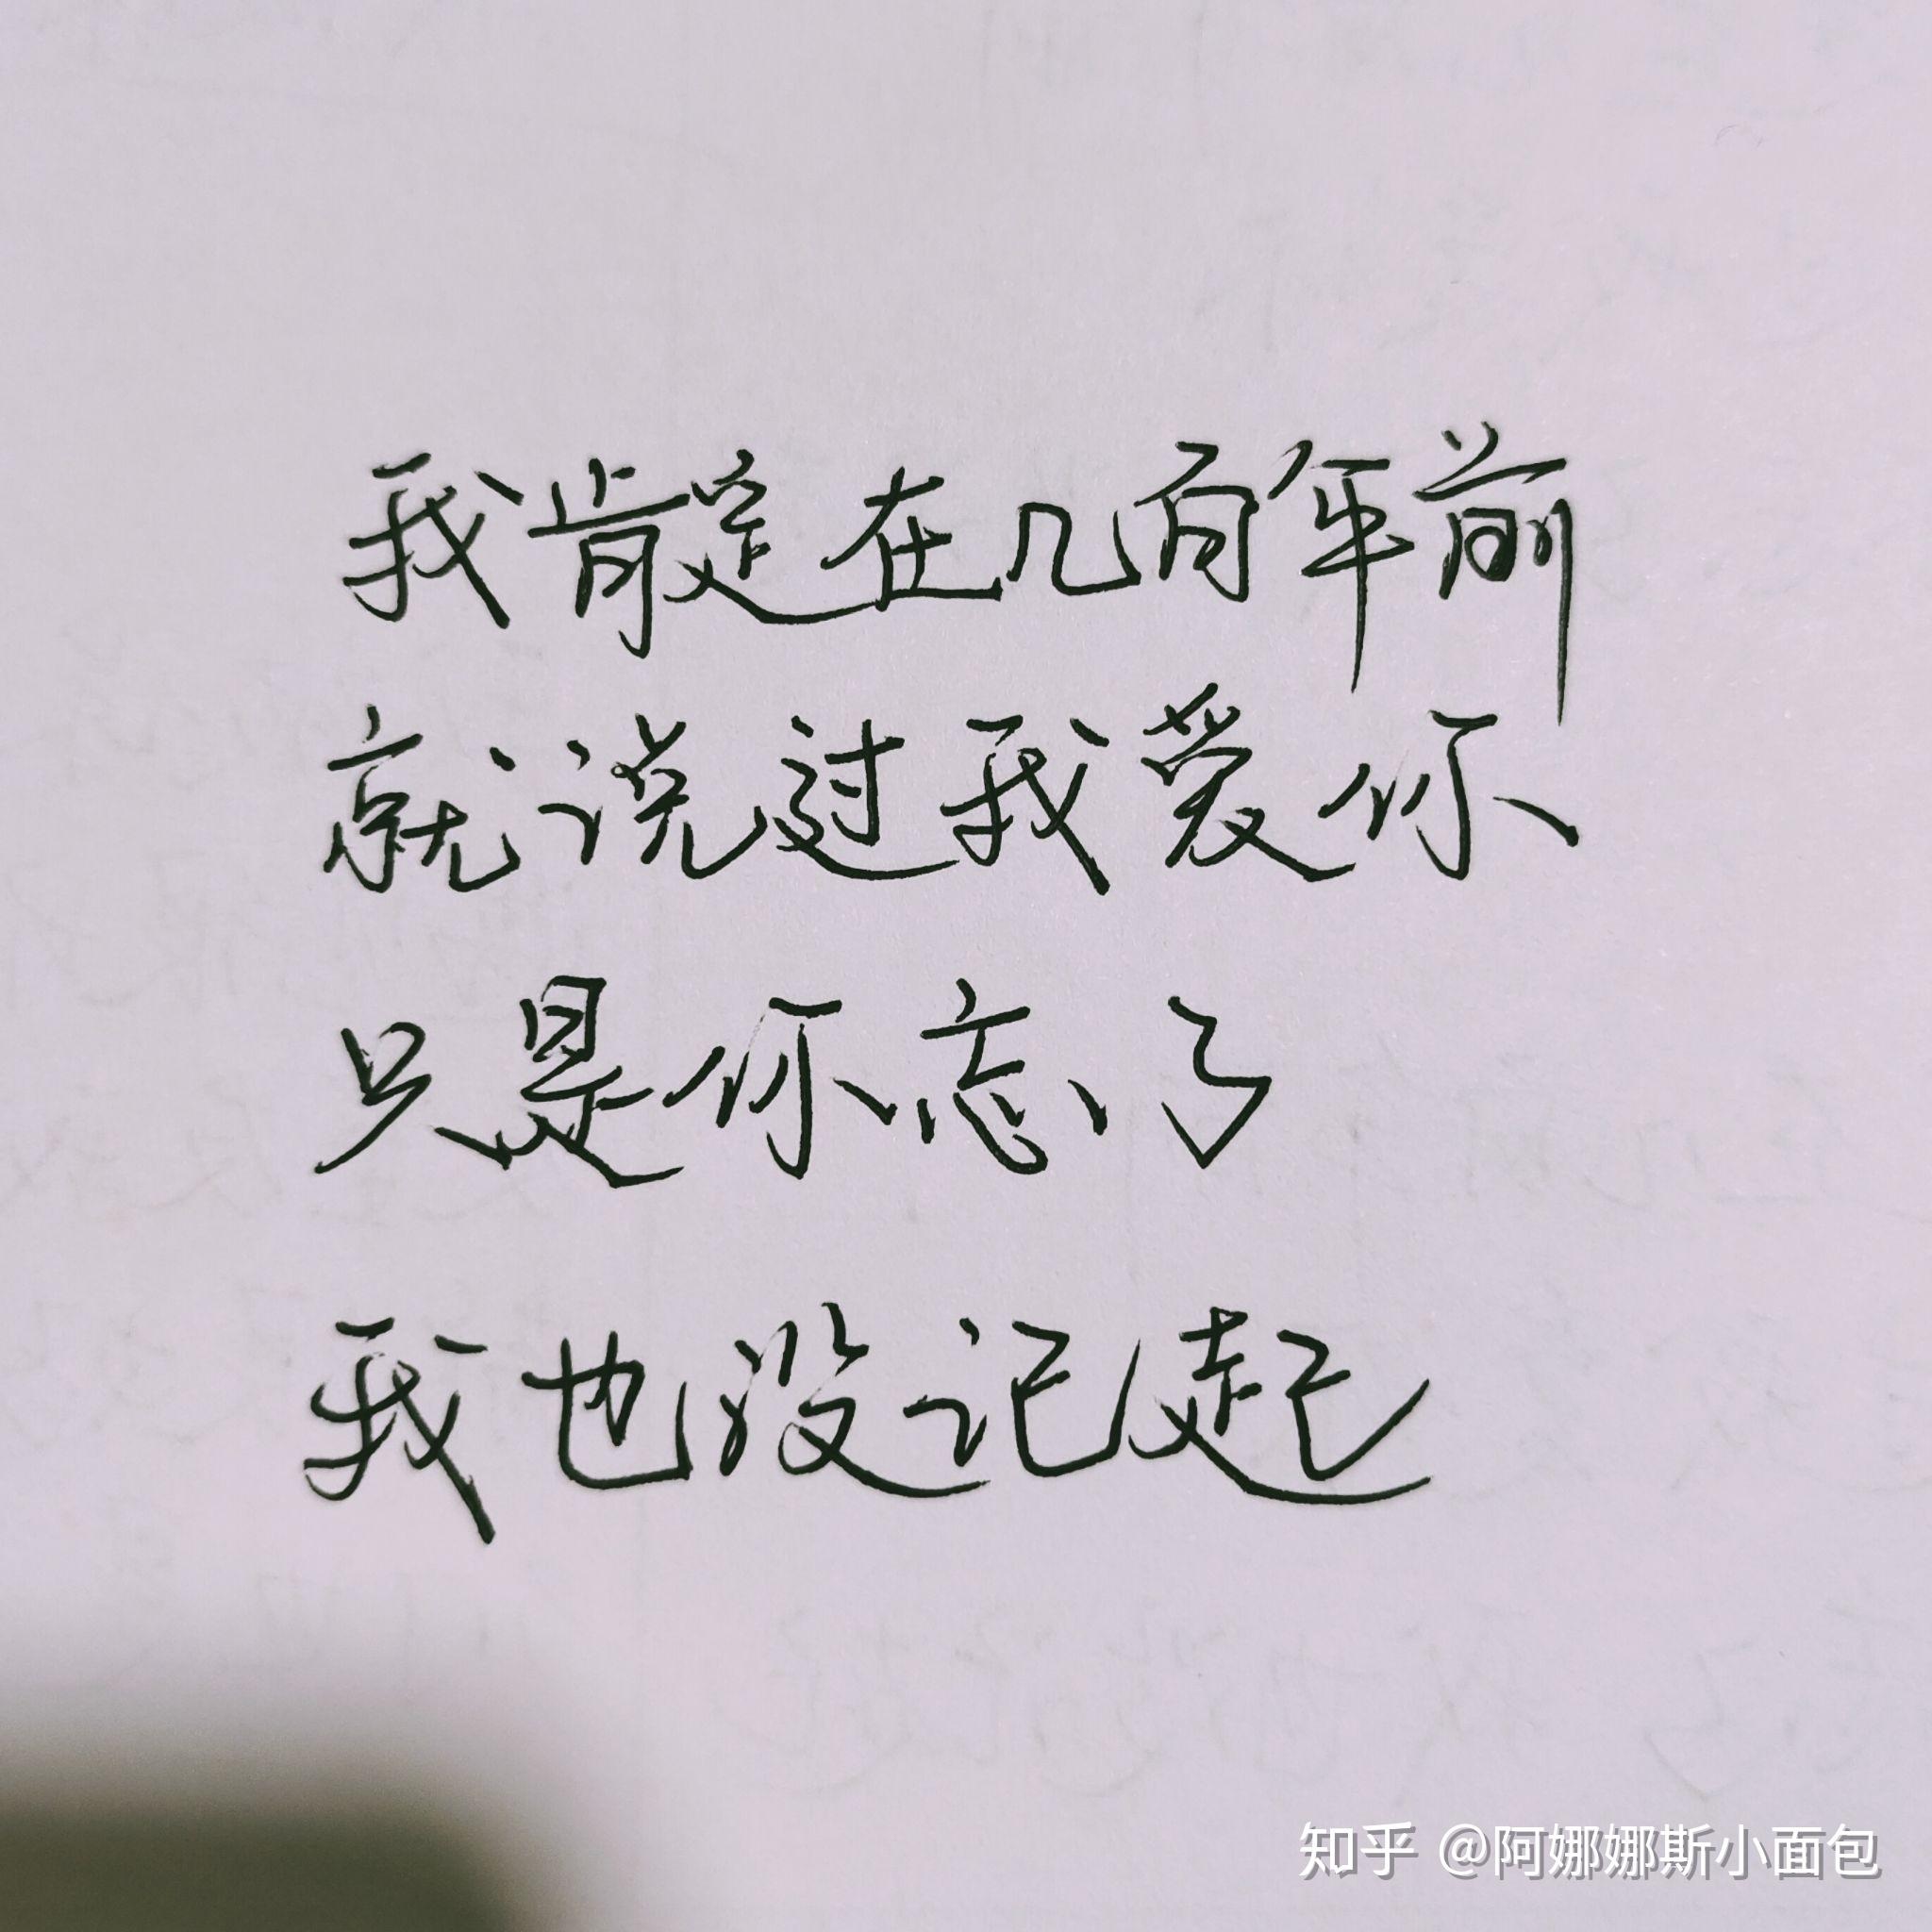 我肯定在几百年前
就说过我爱你
只是你忘了
我也没记起
知乎 @阿娜娜斯小面包